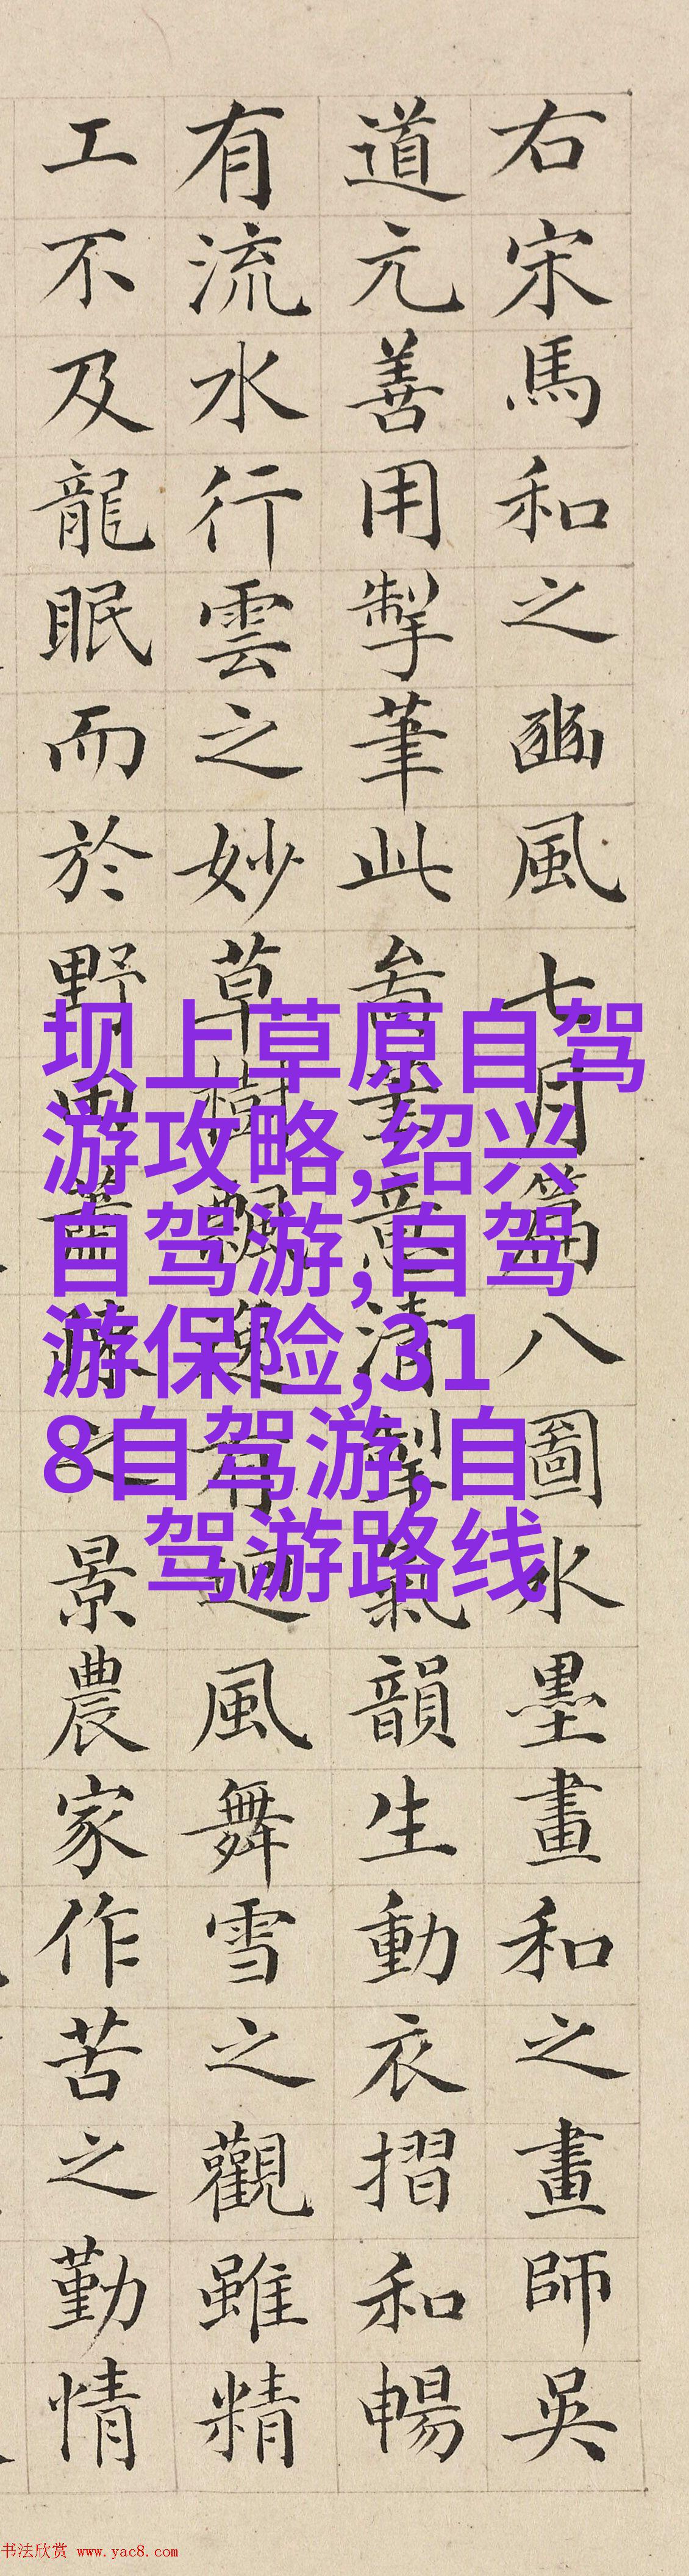 右宋馬和之豳風七月篇八圖水墨畫和之畫師吳
道元善用掣筆此
清掣氣韻生動衣摺和暢
有流水行雲之妙草樹飄逸有迴風舞雪之觀雖精
工不及龍眠而於野
之景農家作苦之勤情
坝上草原自驾
游攻略,绍兴
自驾游,自驾
游保险,31
8自驾游,自
驾游路线
书法欣赏 www.yac8.com